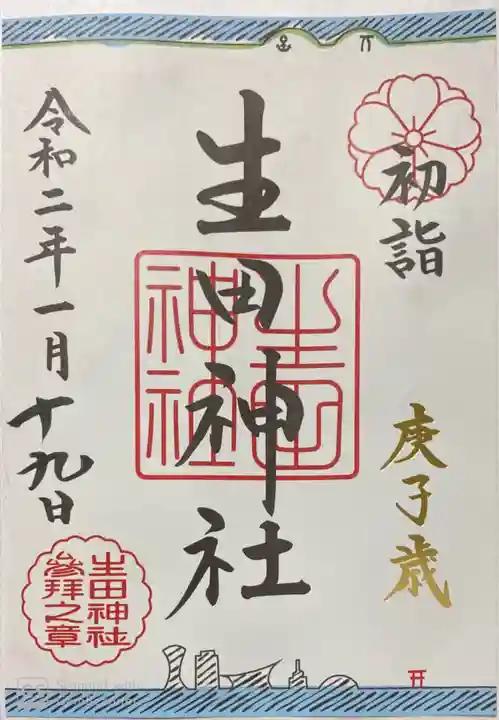 初詣
庚子歳
生田神社
生田神社
令和二年一月十九日
生田神社
參拜之章